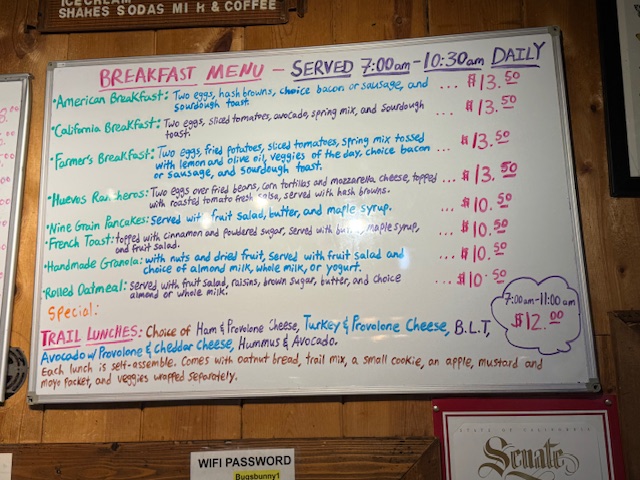 ICECREAM
SHAKES SODAS MILK & COFFEE
BREAKFAST MENU - SERVED 7:00am - 10:30am DAILY
• American Breakfast: Two eggs, hash browns, choice bacon or sausage, and ... $13.50
sourdough toast.
• California Breakfast: Two eggs, sliced tomatoes, avocado, spring mix, and sourdough ... $13.50
toast.
• Farmer's Breakfast: Two eggs, fried potatoes, sliced tomatoes, spring mix tossed ... $13.50
with lemon and olive oil, veggies of the day, choice bacon
or sausage, and sourdough toast.
• Huevos Rancheros: Two eggs over fried beans, corn tortillas and mozzarella cheese, topped ... $13.50
with roasted tomato fresh salsa, served with hash browns.
• Nine Grain Pancakes: Served with fruit salad, butter, and maple syrup. ... $10.50
• French Toast: topped with cinnamon and powdered sugar, served with butter, maple syrup, ... $10.50
and fruit salad.
• Handmade Granola: with nuts and dried fruit, served with fruit salad and ... $10.50
choice of almond milk, whole milk, or yogurt.
• Rolled Oatmeal: served with fruit salad, raisins, brown sugar, butter, and choice ... $10.50
almond or whole milk.
Special:
7:00am-11:00am
$12.00
TRAIL LUNCHES: Choice of Ham & Provolone Cheese, Turkey & Provolone Cheese, B.L.T,
Avocado w/ Provolone & Cheddar Cheese, Hummus & Avocado.
Each lunch is self-assemble. Comes with oatnut bread, trail mix, a small cookie, an apple, mustard and
mayo packet, and veggies wrapped separately.
WIFI PASSWORD
Bugsbunny1
STATE OF CALIFORNIA
Senate